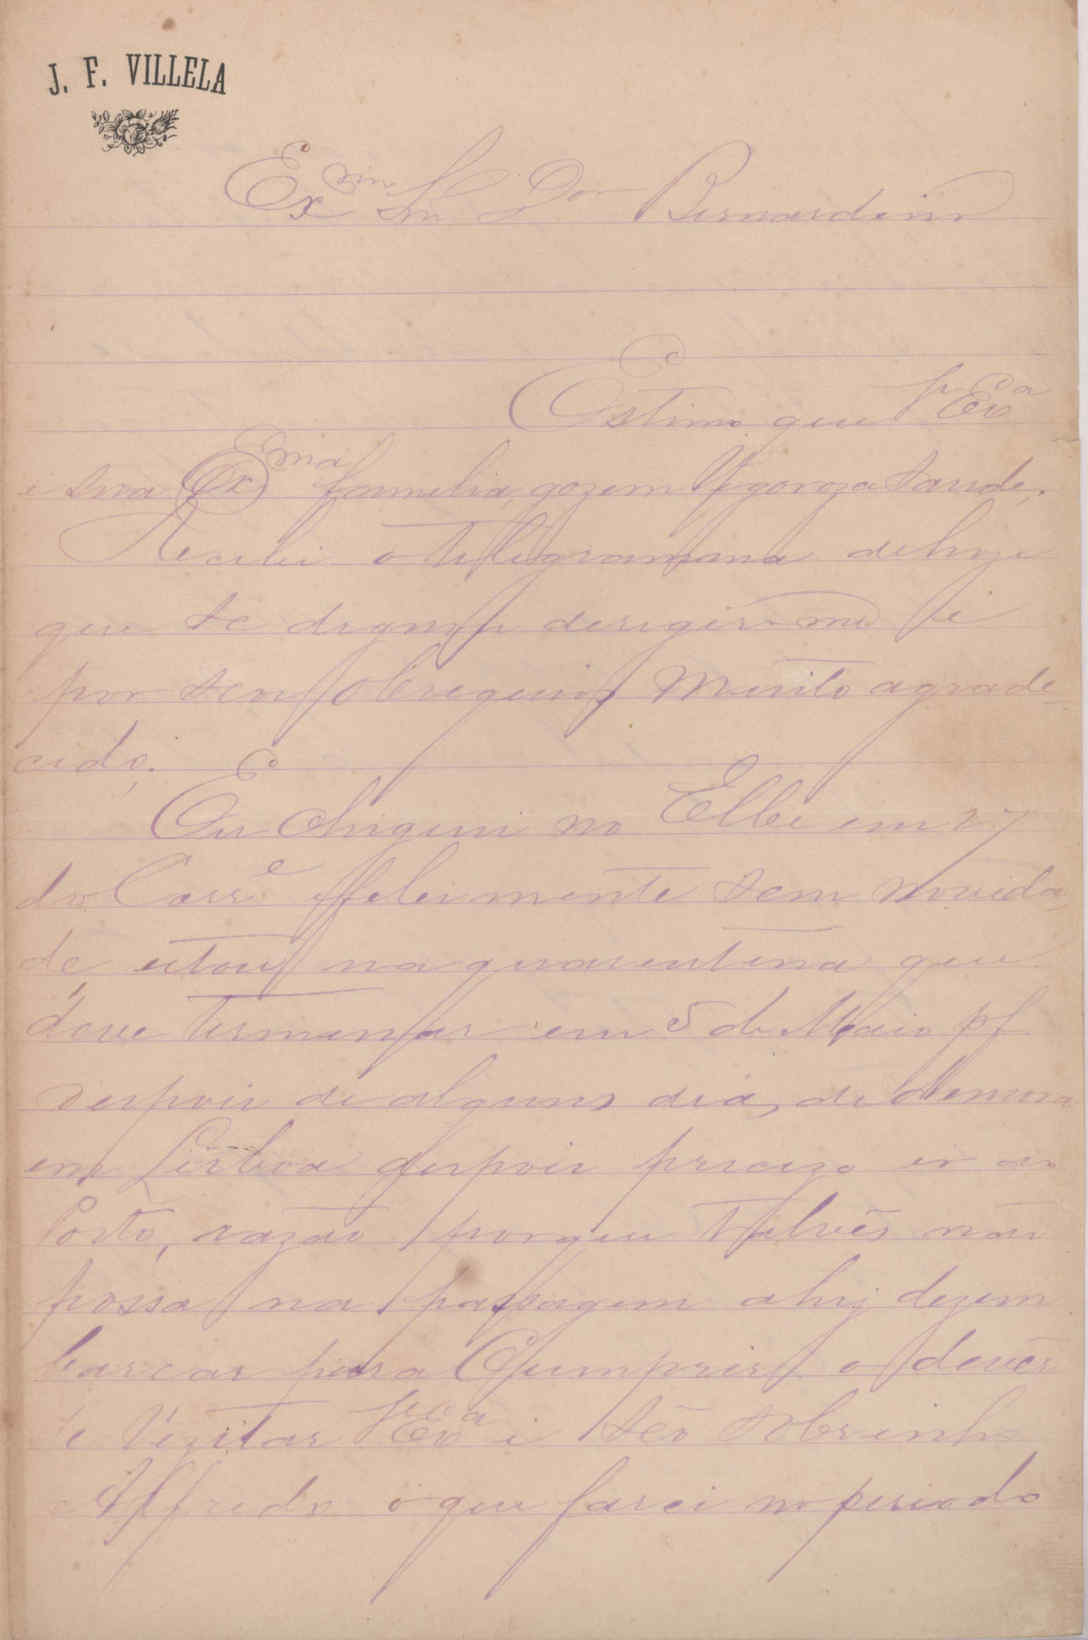 J. F. VILLELA
Exmo Snr Dor Bernardino
Estimo que V Exa
e sua Exma familia gozem Vigoroza Saude.
Recebi o Telegramma de hoje
que se dignou derigir-me i
por seu Obsequio, Muito agrade
cido.
Eu Cheguei no Elbe em 27
do Corre felesmente sem novida
de estou na quarentena que
deve Terminar em 5 de Maio pf
despois de alguns dias de demora
em Lisboa despois precizo ir ao
Porto, razão porque Talvês não
possa na passagem ahi dezem
barcar para Cumprir o devêr
e Vizitar V Exa i Seo Sobrinho
Alfredo o que farei no periodo